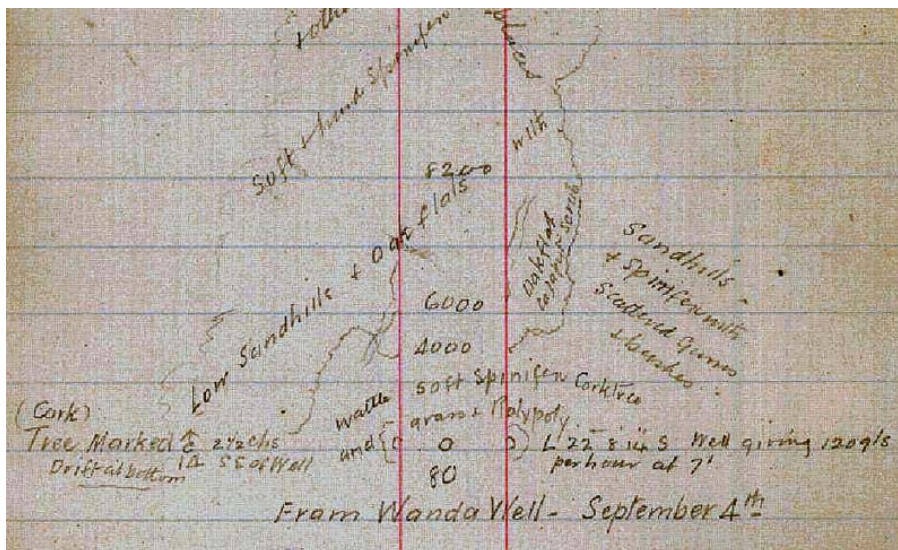 + othe
Soft + hand Spinifex
places
with
8200
Low Sandhills + Oak flats
Oak flat
scrub
Sandhills
+ Spinifex with
Scattered Gums
+ bushes
6000
4000
wattle soft Spinifex Corktree
and grass + Rolypoly
(Cork)
Tree Marked 2½ chs
SE of Well
Drift at bottom
0
L 22 8 14 S Well giving 120 gls
per hour at 7'
80
From Wanda Well - September 4th